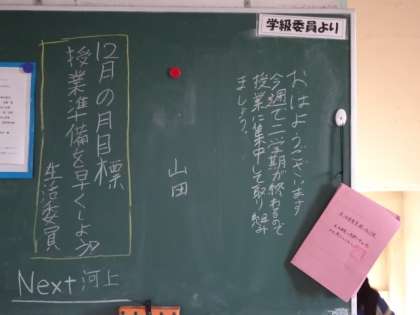 学級委員より
おはようございます
今週で二学期が終わるので
授業に集中して取り組み
ましょう。
山田
12月の月目標
授業準備を早くしよう
生活委員
Next 河上